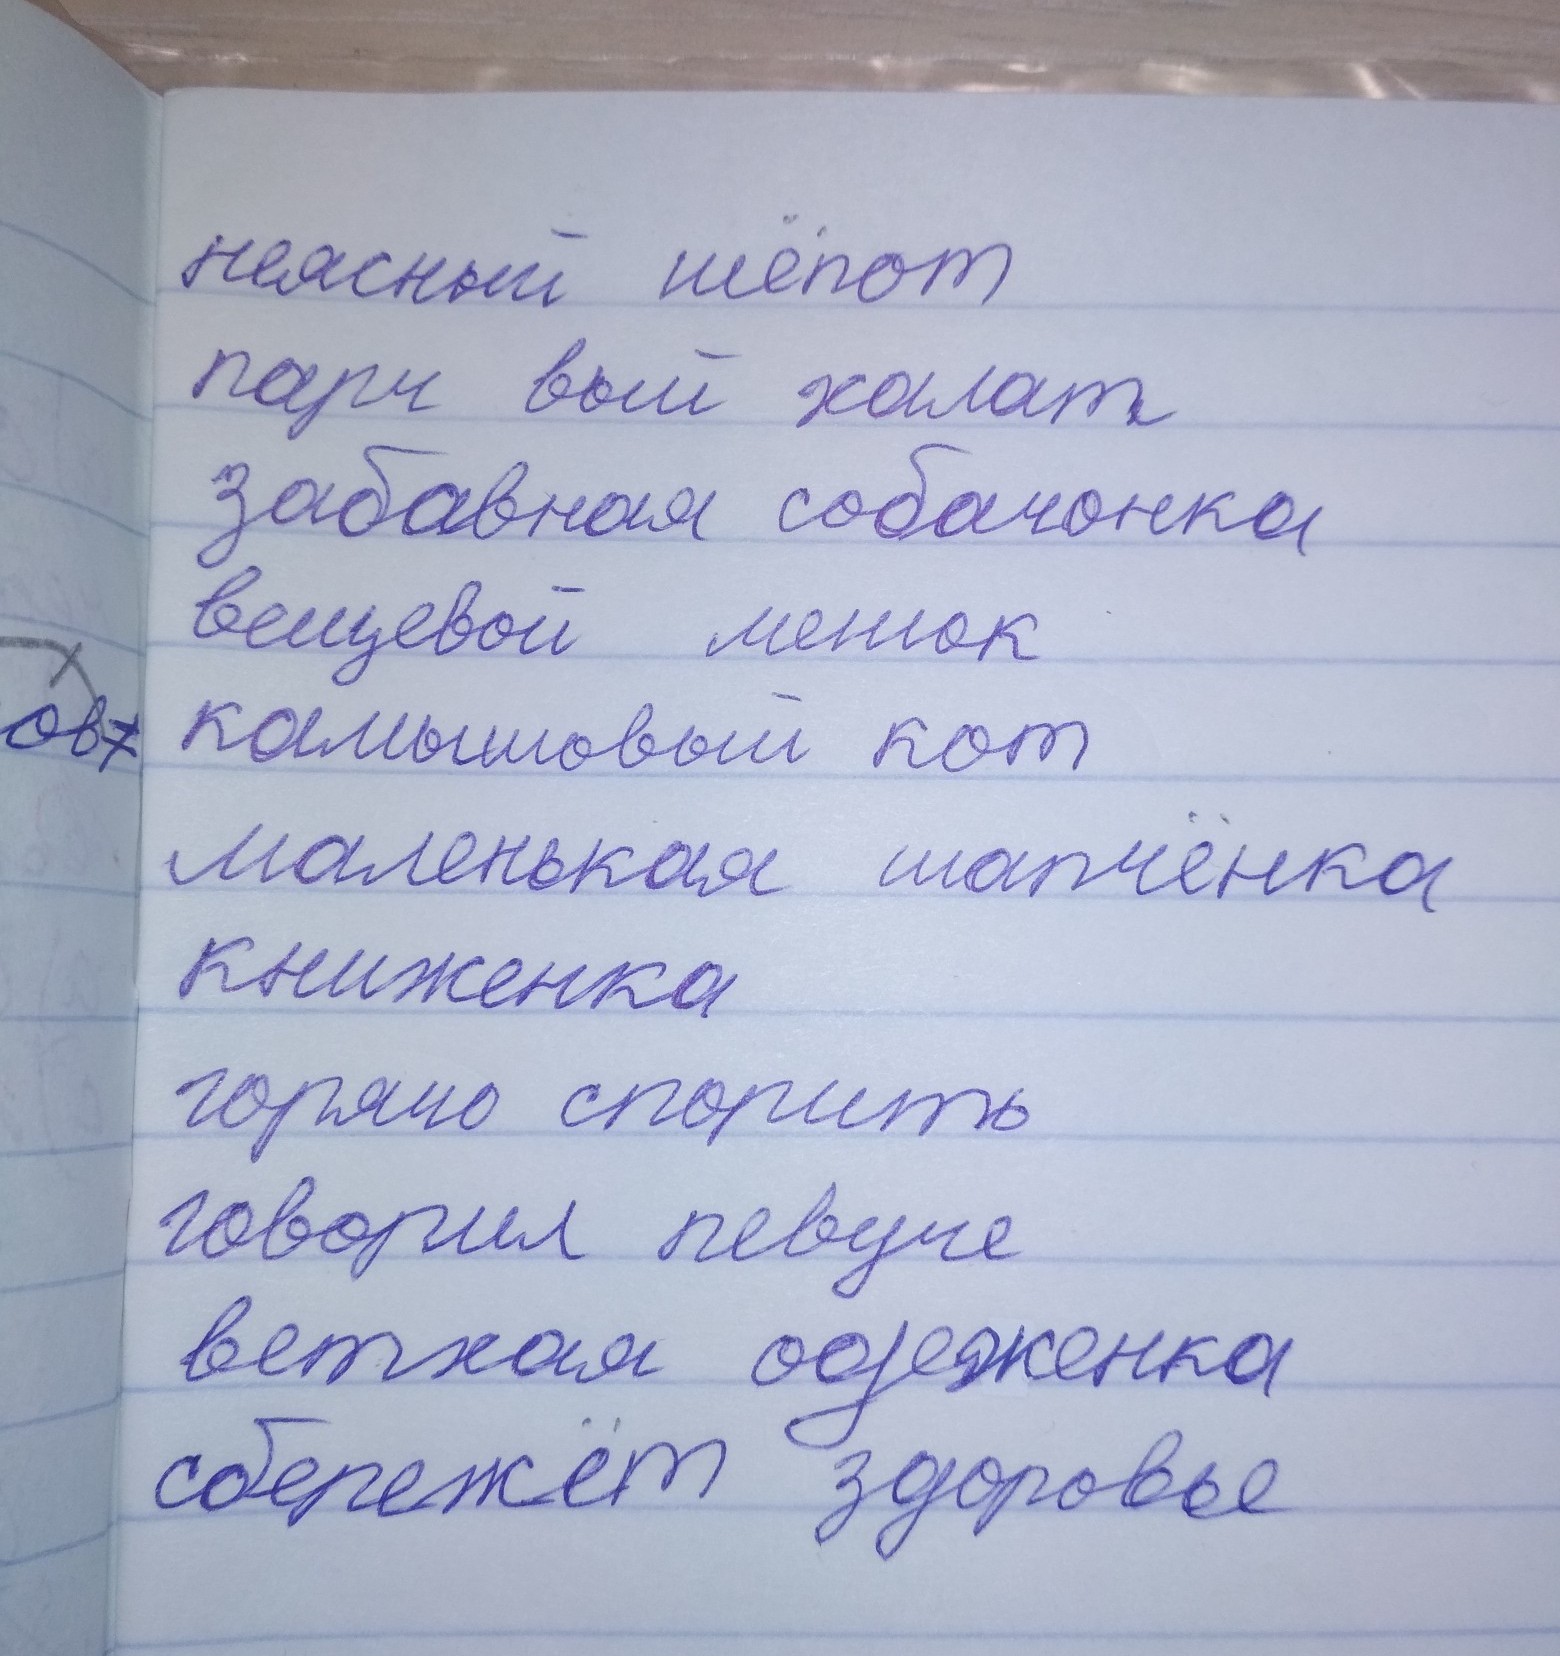 неясный шёпот
парч вый халат
забавная собачонка
вещевой мешок
камышовый кот
ов7
маленькая шапчёнка
книженка
горячо спорить
говорил певуче
ветхая одеженка
сбережёт здоровье